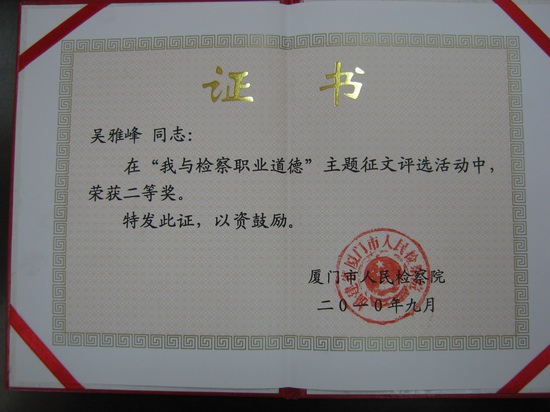 证 书
吴雅峰 同志：
在“我与检察职业道德”主题征文评选活动中，
荣获二等奖。
特发此证，以资鼓励。
福建省厦门市人民检察院
厦门市人民检察院
二〇一〇年九月